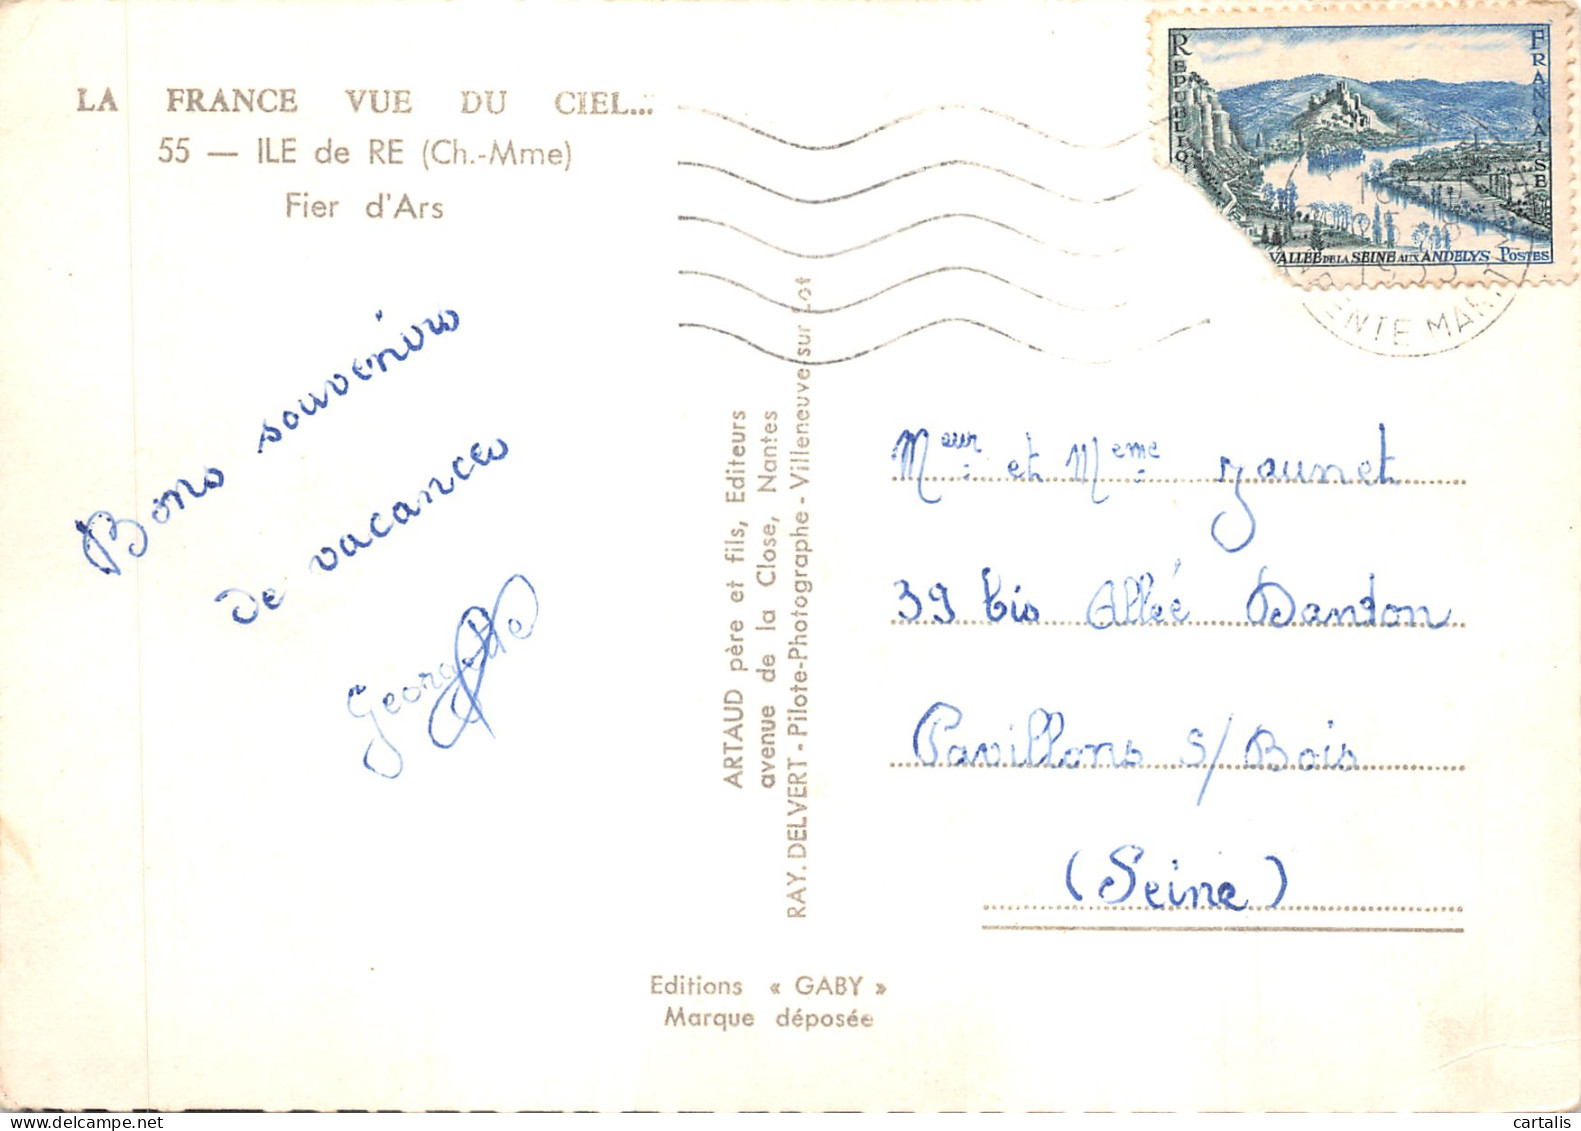 LA FRANCE VUE DU CIEL...
55 — ILE de RE (Ch.-Mme)
Fier d'Ars
Bons souvenirs
de vacances
Georgette
ARTAUD père et fils, Editeurs
avenue de la Close, Nantes
RAY. DELVERT - Pilote-Photographe - Villeneuve sur Lot
Editions « GABY »
Marque déposée
REPUBLIQ
FRANÇAISE
VALLEE DE LA SEINE AUX ANDELYS POSTES
ENTE MAR
Meur et Meme Jaunet
39 bis Allée Danton
Pavillons s/ Bois
(Seine)
cartalis